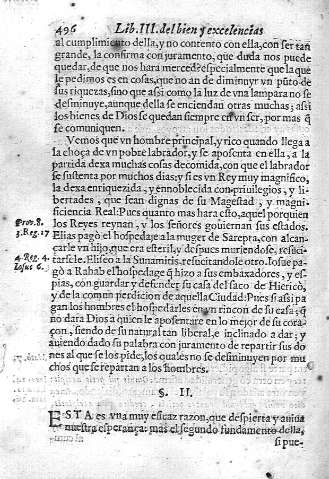 496 Lib. III. del bien y excelencias
al cumplimiento della, y no contento con ella, con ser tan
grande, la confirma con juramento, que duda nos puede
quedar, de que nos hara merced? especialmente que la q̃ le
pedimos es en cosas, que no an de diminuyr vn pũto de
sus riquezas, sino que assi como la luz de vna lampara no se
desminuye, aunque della se enciendan otras muchas; assi
los bienes de Dios se quedan siempre en vn ser, por mas q̃
se comuniquen.
Vemos que vn hombre principal, y rico quando llega a
la choça de vn pobre labrador, y se aposenta en ella, a la
partida dexa muchas cosas de comida, con que el labrador
se sustenta por muchos dias; y si es vn Rey muy magnifico,
la dexa enriquezida, y ennoblecida con priuilegios, y li-
bertades, que sean dignas de su Magestad, y magni-
ficiencia Real: Pues quanto mas hara esto, aquel por quien
Prov. 8. los Reyes reynan, y los señores gouiernan sus estados.
3. Reg. 17 Elias pagò el hospedaje a la muger de Sarepta, con alcan-
çarle vn hijo, que era esteril, y despues muriendose, resuci-
4. Reg. 4. tarsele. Eliseo a la Sunamitis, resucitandole otro. Iosue pa-
Iosue 6. gò a Rahab el hospedage q̃ hizo a sus embaxadores, y es-
pias, con guardar y defender su casa del saco de Hiericò,
y de la comun perdicion de aquella Ciudad: Pues si assi pa-
gan los hombres el hospedarles en vn rincon de su casa; q̃
no darà Dios a quien le aposentare en lo mejor de su cora-
çon, siendo de su natural tan liberal, e inclinado a dar; y
auiendo dado su palabra con juramento de repartir sus do
nes al que se los pide, los quales no se desminuyen por mu
chos que se repartan a los hombres.
§. II.
ESTA es vna muy eficaz razon, que despierta y auiua
nuestra esperança: mas el segundo fundamento della,
si pue-